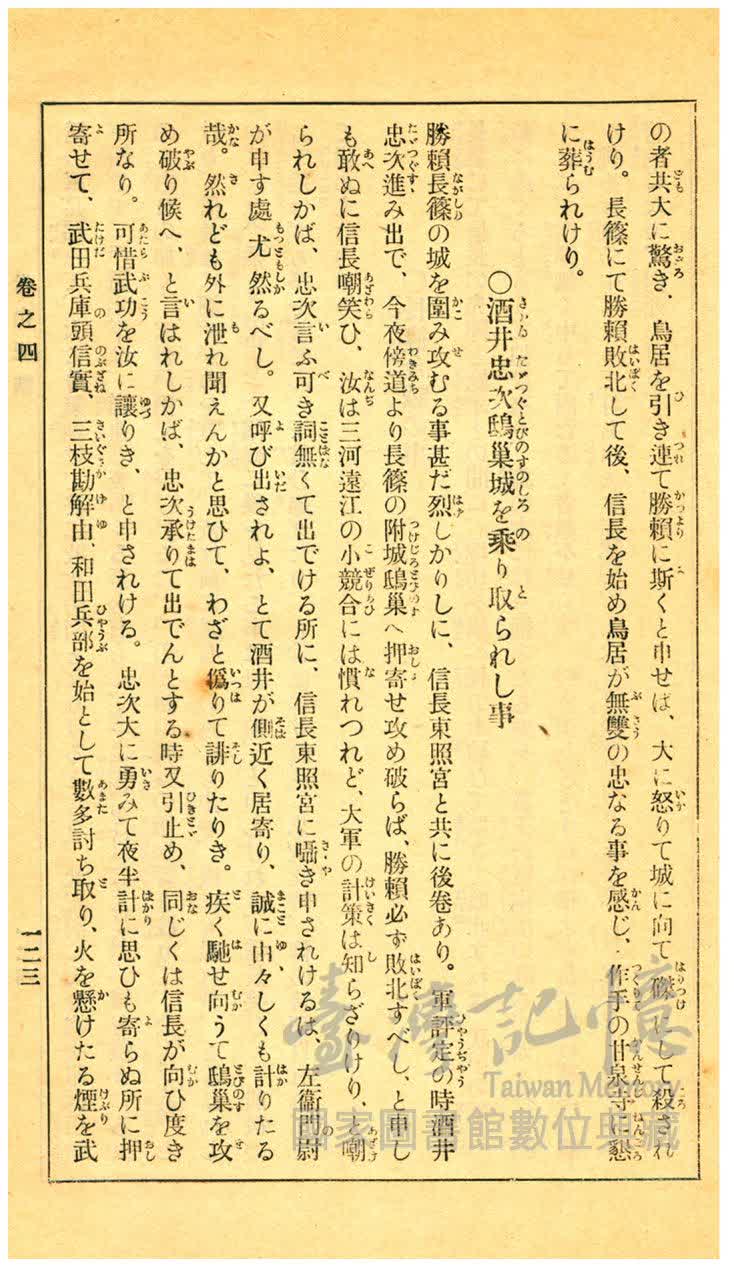 の者共大に驚き、鳥居を引き連て勝頼に斯くと申せば、大に怒りて城に向て磔にして殺され
けり。長篠にて勝頼敗北して後、信長を始め鳥居が無雙の忠なる事を感じ、作手の甘泉寺に懇
に葬られけり。
〇酒井忠次鴟巢城を乗り取られし事
勝頼長篠の城を圍み攻むる事甚だ烈しかりしに、信長東照宮と共に後卷あり。軍評定の時酒井
忠次進み出で、今夜傍道より長篠の附城鴟巢へ押寄せ攻め破らば、勝頼必ず敗北すべし、と申し
も敢ぬに信長嘲笑ひ、汝は三河遠江の小競合には慣れつれど、大軍の計策は知らざりけり、と嘲
られしかば、忠次言ふ可き詞無くて出でける所に、信長東照宮に囁き申されけるは、左衞門尉
が申す處尤然るべし。又呼び出されよ、とて酒井が側近く居寄り、誠に由々しくも計りたる
哉。然れども外に泄れ聞えんかと思ひて、わざと僞りて誹りたりき。疾く馳せ向うて鴟巢を攻
め破り候へ、と言はれしかば、忠次承りて出でんとする時又引止め、同じくは信長が向ひ度き
所なり。可惜武功を汝に讓りき、と申されける。忠次大に勇みて夜半計に思ひも寄らぬ所に押
寄せて、武田兵庫頭信實、三枝勘解由、和田兵部を始として數多討ち取り、火を懸けたる煙を武
卷之四
一二三
臺灣記憶
Taiwan Memory
國家圖書館數位典藏